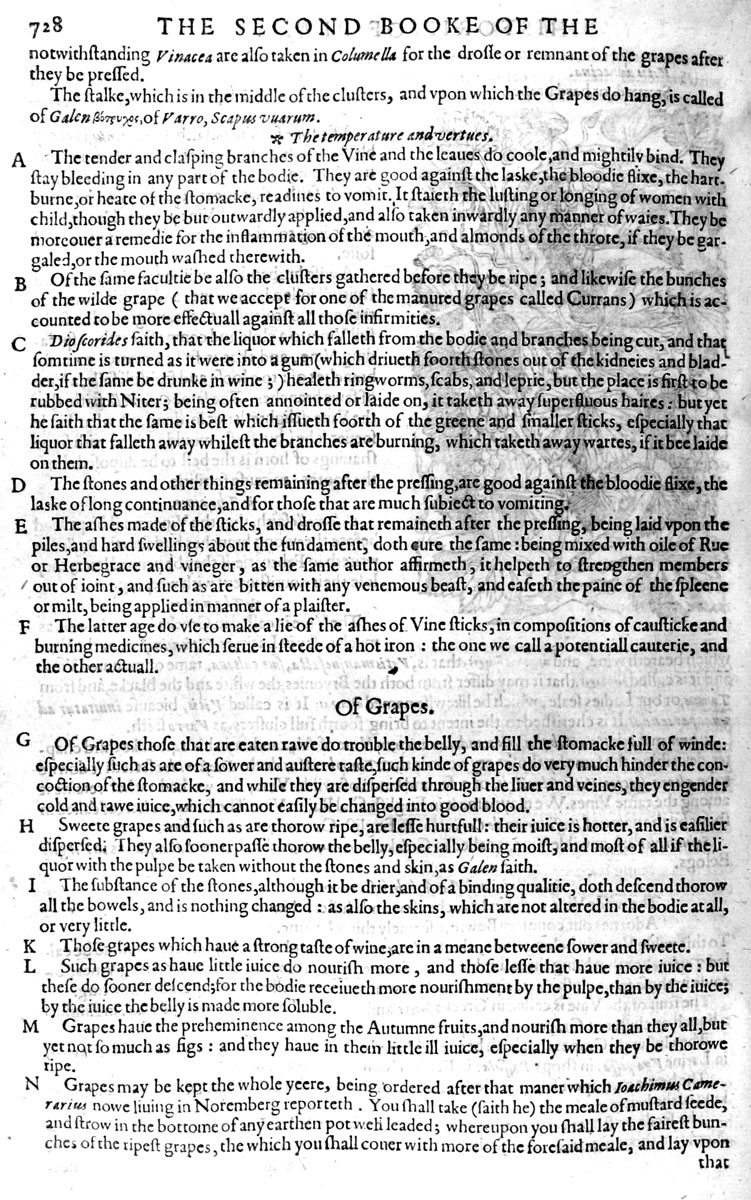 728 THE SECOND BOOKE OF THE
notwithſtanding Vinacea are alſo taken in Columella for the droſſe or remnant of the grapes after
they be preſſed.
The ſtalke, which is in the middle of the cluſters, and vpon which the Grapes do hang, is called
of Galen βότρυχος, of Varro, Scapus vuarum.
* The temperature and vertues.
A The tender and claſping branches of the Vine and the leaues do coole, and mightily bind. They
ſtay bleeding in any part of the bodie. They are good againſt the laske, the bloodie flixe, the hart-
burne, or heate of the ſtomacke, readines to vomit. It ſtaieth the luſting or longing of women with
child, though they be but outwardly applied, and alſo taken inwardly any manner of waies. They be
moreouer a remedie for the inflammation of the mouth, and almonds of the throte, if they be gar-
galed, or the mouth waſhed therewith.
B Of the ſame facultie be alſo the cluſters gathered before they be ripe; and likewiſe the bunches
of the wilde grape ( that we accept for one of the manured grapes called Currans ) which is ac-
counted to be more effectuall againſt all thoſe infirmities.
C Dioſcorides ſaith, that the liquor which falleth from the bodie and branches being cut, and that
ſomtime is turned as it were into a gum (which driueth foorth ſtones out of the kidneies and blad-
der, if the ſame be drunke in wine ;) healeth ringworms, ſcabs, and leprie, but the place is firſt to be
rubbed with Niter; being often annointed or laide on, it taketh away ſuperfluous haires: but yet
he ſaith that the ſame is beſt which iſſueth foorth of the greene and ſmaller ſticks, eſpecially that
liquor that falleth away whileſt the branches are burning, which taketh away wartes, if it bee laide
on them.
D The ſtones and other things remaining after the preſſing, are good againſt the bloodie flixe, the
laske of long continuance, and for thoſe that are much ſubiect to vomiting.
E The aſhes made of the ſticks, and droſſe that remaineth after the preſſing, being laid vpon the
piles, and hard ſwellings about the fundament, doth cure the ſame: being mixed with oile of Rue
or Herbegrace and vineger, as the ſame author affirmeth, it helpeth to ſtrengthen members
out of ioint, and ſuch as are bitten with any venemous beaſt, and eaſeth the paine of the ſpleene
or milt, being applied in manner of a plaiſter.
F The latter age do vſe to make a lie of the aſhes of Vine ſticks, in compoſitions of cauſticke and
burning medicines, which ſerue in ſteede of a hot iron : the one we call a potentiall cauterie, and
the other actuall.
Of Grapes.
G Of Grapes thoſe that are eaten rawe do trouble the belly, and fill the ſtomacke full of winde:
eſpecially ſuch as are of a ſower and auſtere taſte, ſuch kinde of grapes do very much hinder the con-
coction of the ſtomacke, and while they are diſperſed through the liuer and veines, they engender
cold and rawe iuice, which cannot eaſily be changed into good blood.
H Sweete grapes and ſuch as are thorow ripe, are leſſe hurtfull: their iuice is hotter, and is eaſilier
diſperſed. They alſo ſooner paſſe thorow the belly, eſpecially being moiſt, and moſt of all if the li-
quor with the pulpe be taken without the ſtones and skin, as Galen ſaith.
I The ſubſtance of the ſtones, although it be drier, and of a binding qualitie, doth deſcend thorow
all the bowels, and is nothing changed : as alſo the skins, which are not altered in the bodie at all,
or very little.
K Thoſe grapes which haue a ſtrong taſte of wine, are in a meane betweene ſower and ſweete.
L Such grapes as haue little iuice do nouriſh more , and thoſe leſſe that haue more iuice : but
theſe do ſooner deſcend; for the bodie receiueth more nouriſhment by the pulpe, than by the iuice;
by the iuice the belly is made more ſoluble.
M Grapes haue the preheminence among the Autumne fruits, and nouriſh more than they all, but
yet not ſo much as figs : and they haue in them little ill iuice, eſpecially when they be thorowe
ripe.
N Grapes may be kept the whole yeere, being ordered after that maner which Ioachimus Came-
rarius nowe liuing in Noremberg reporteth . You ſhall take (ſaith he) the meale of muſtard ſeede,
and ſtrow in the bottome of any earthen pot well leaded; whereupon you ſhall lay the faireſt bun-
ches of the ripeſt grapes, the which you ſhall couer with more of the foreſaid meale, and lay vpon
that